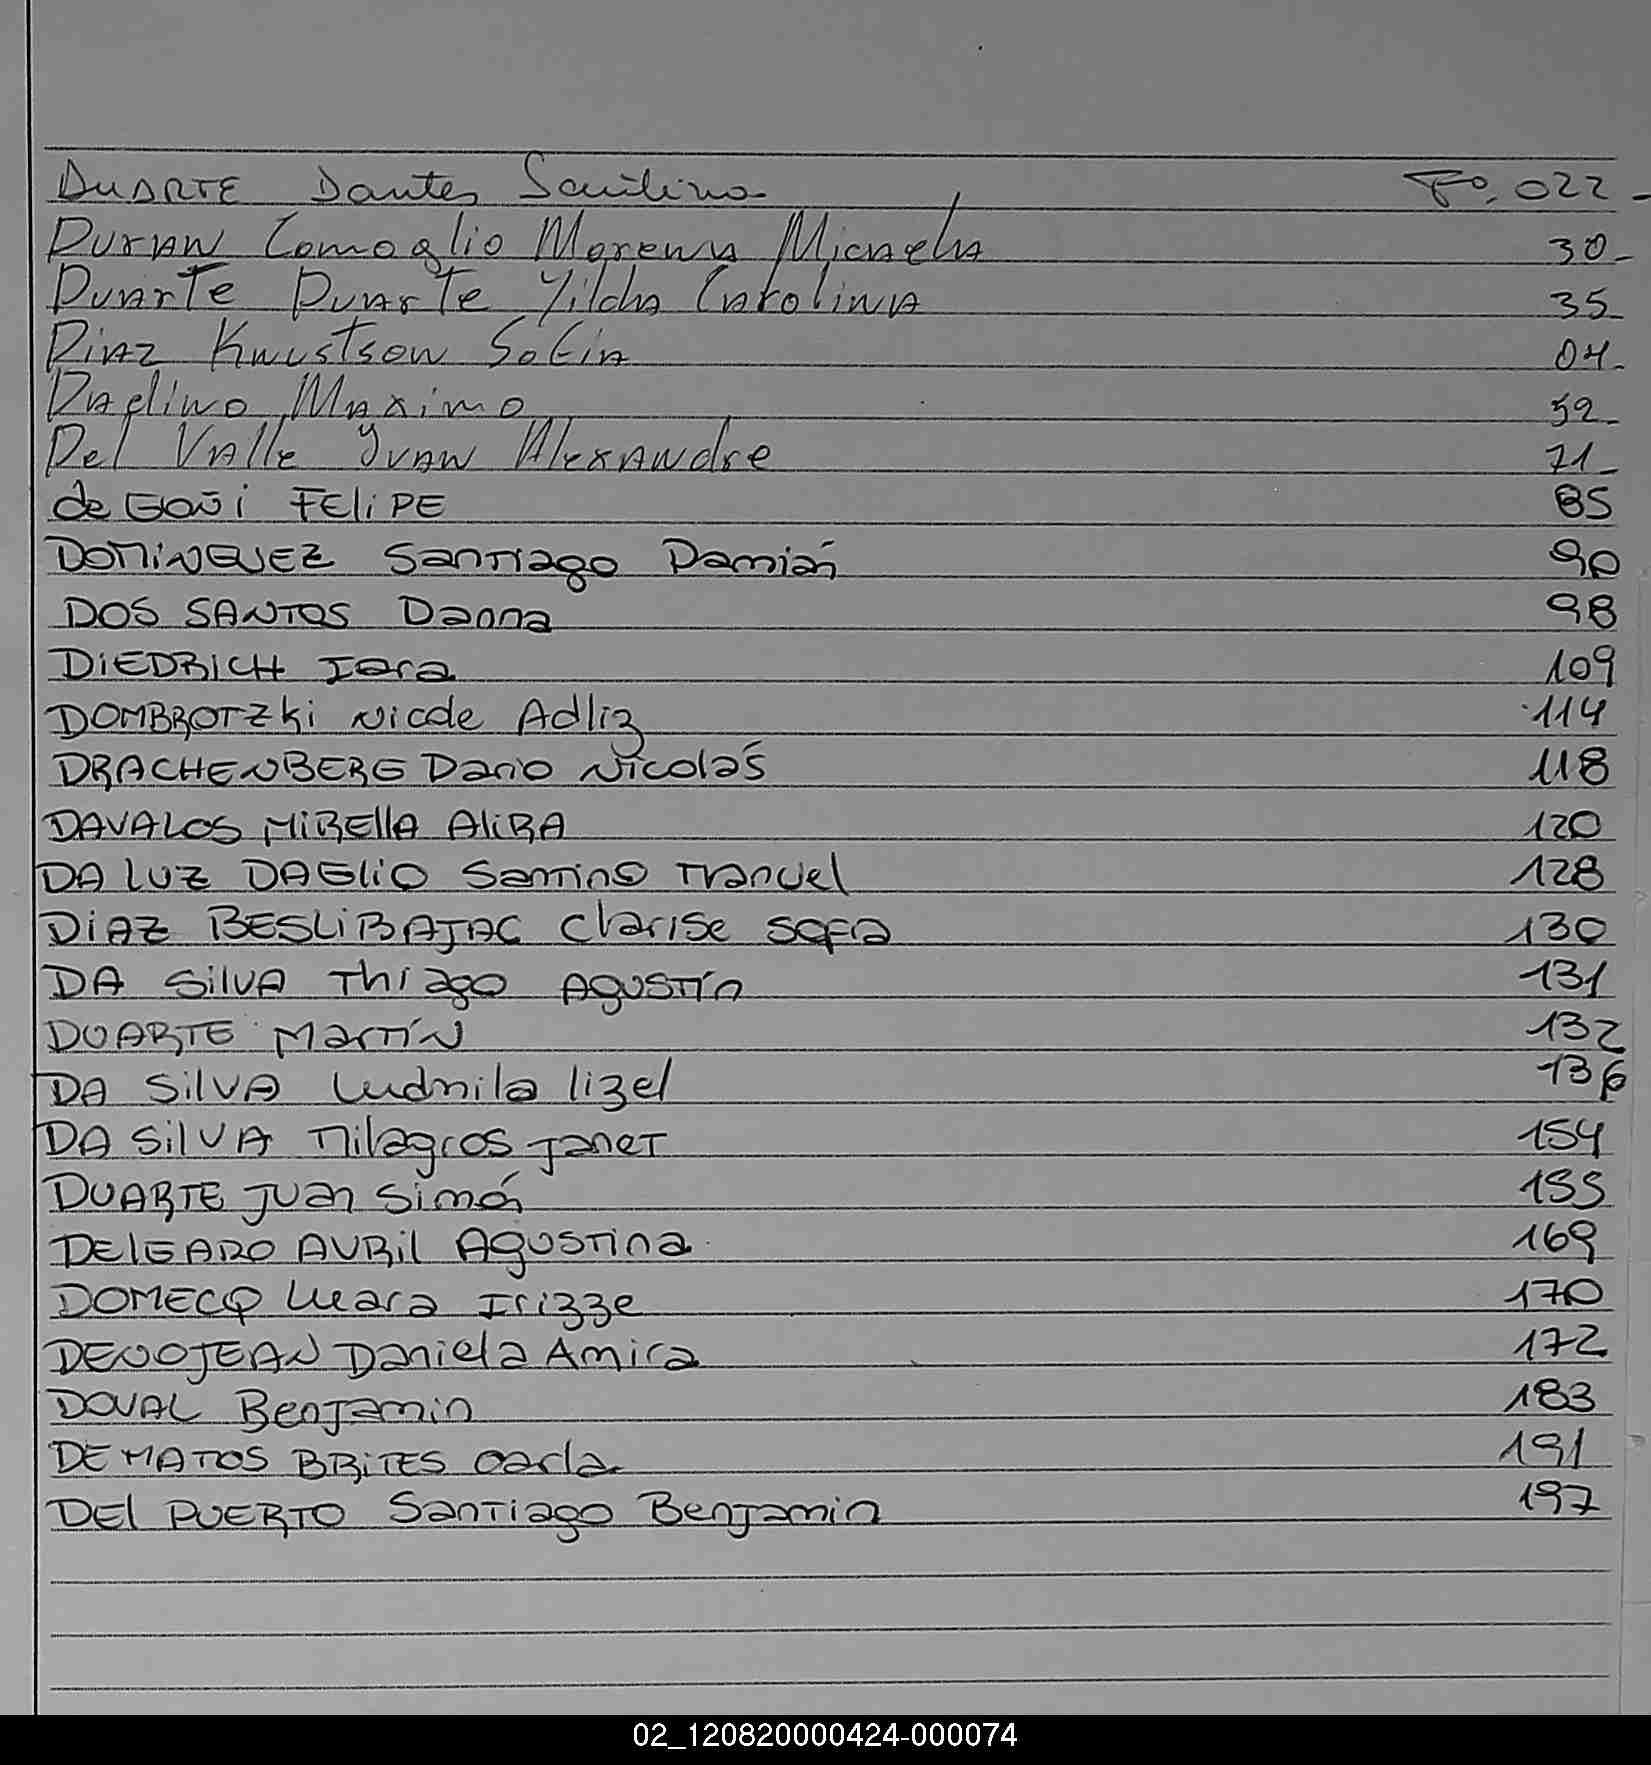 DUARTE Dantes Santino Fº. 022-
Duran Comoglio Morena Micaela 30-
Duarte Duarte Yilda Carolina 35-
Diaz Knustson Sofia 04-
Daglino Maximo 52-
Del Valle Ivan Alexandre 71-
de Goñi FEliPE 85
DOMINGUEZ Santiago Damián 90
DOS SANTOS Danna 98
DiEDRICH Iara 109
DOMBROTZKi Nicole Adliz 114
DRACHENBERG Dario Nicolás 118
DAVALOS MIRElla AliRA 120
DA LUZ DAGLIO Santino Manuel 128
DiAZ BESLiBAJAC Clarise Sofia 130
DA SilVA Thiago AgusTín 131
DUARTE MarTíN 132
DA SilVA Ludmila lizel 136
DA SilVA Milagros Janet 154
DUARTE Juan Simón 155
DELGADO AVRil Agustina 169
DOMECQ Luara Irizze 170
DENOJEAN Daniela Amira 172
DOVAL Benjamin 183
DE MATOS BRiTES Carla 191
DEl PUERTO Santiago Benjamin 197
02_120820000424-000074